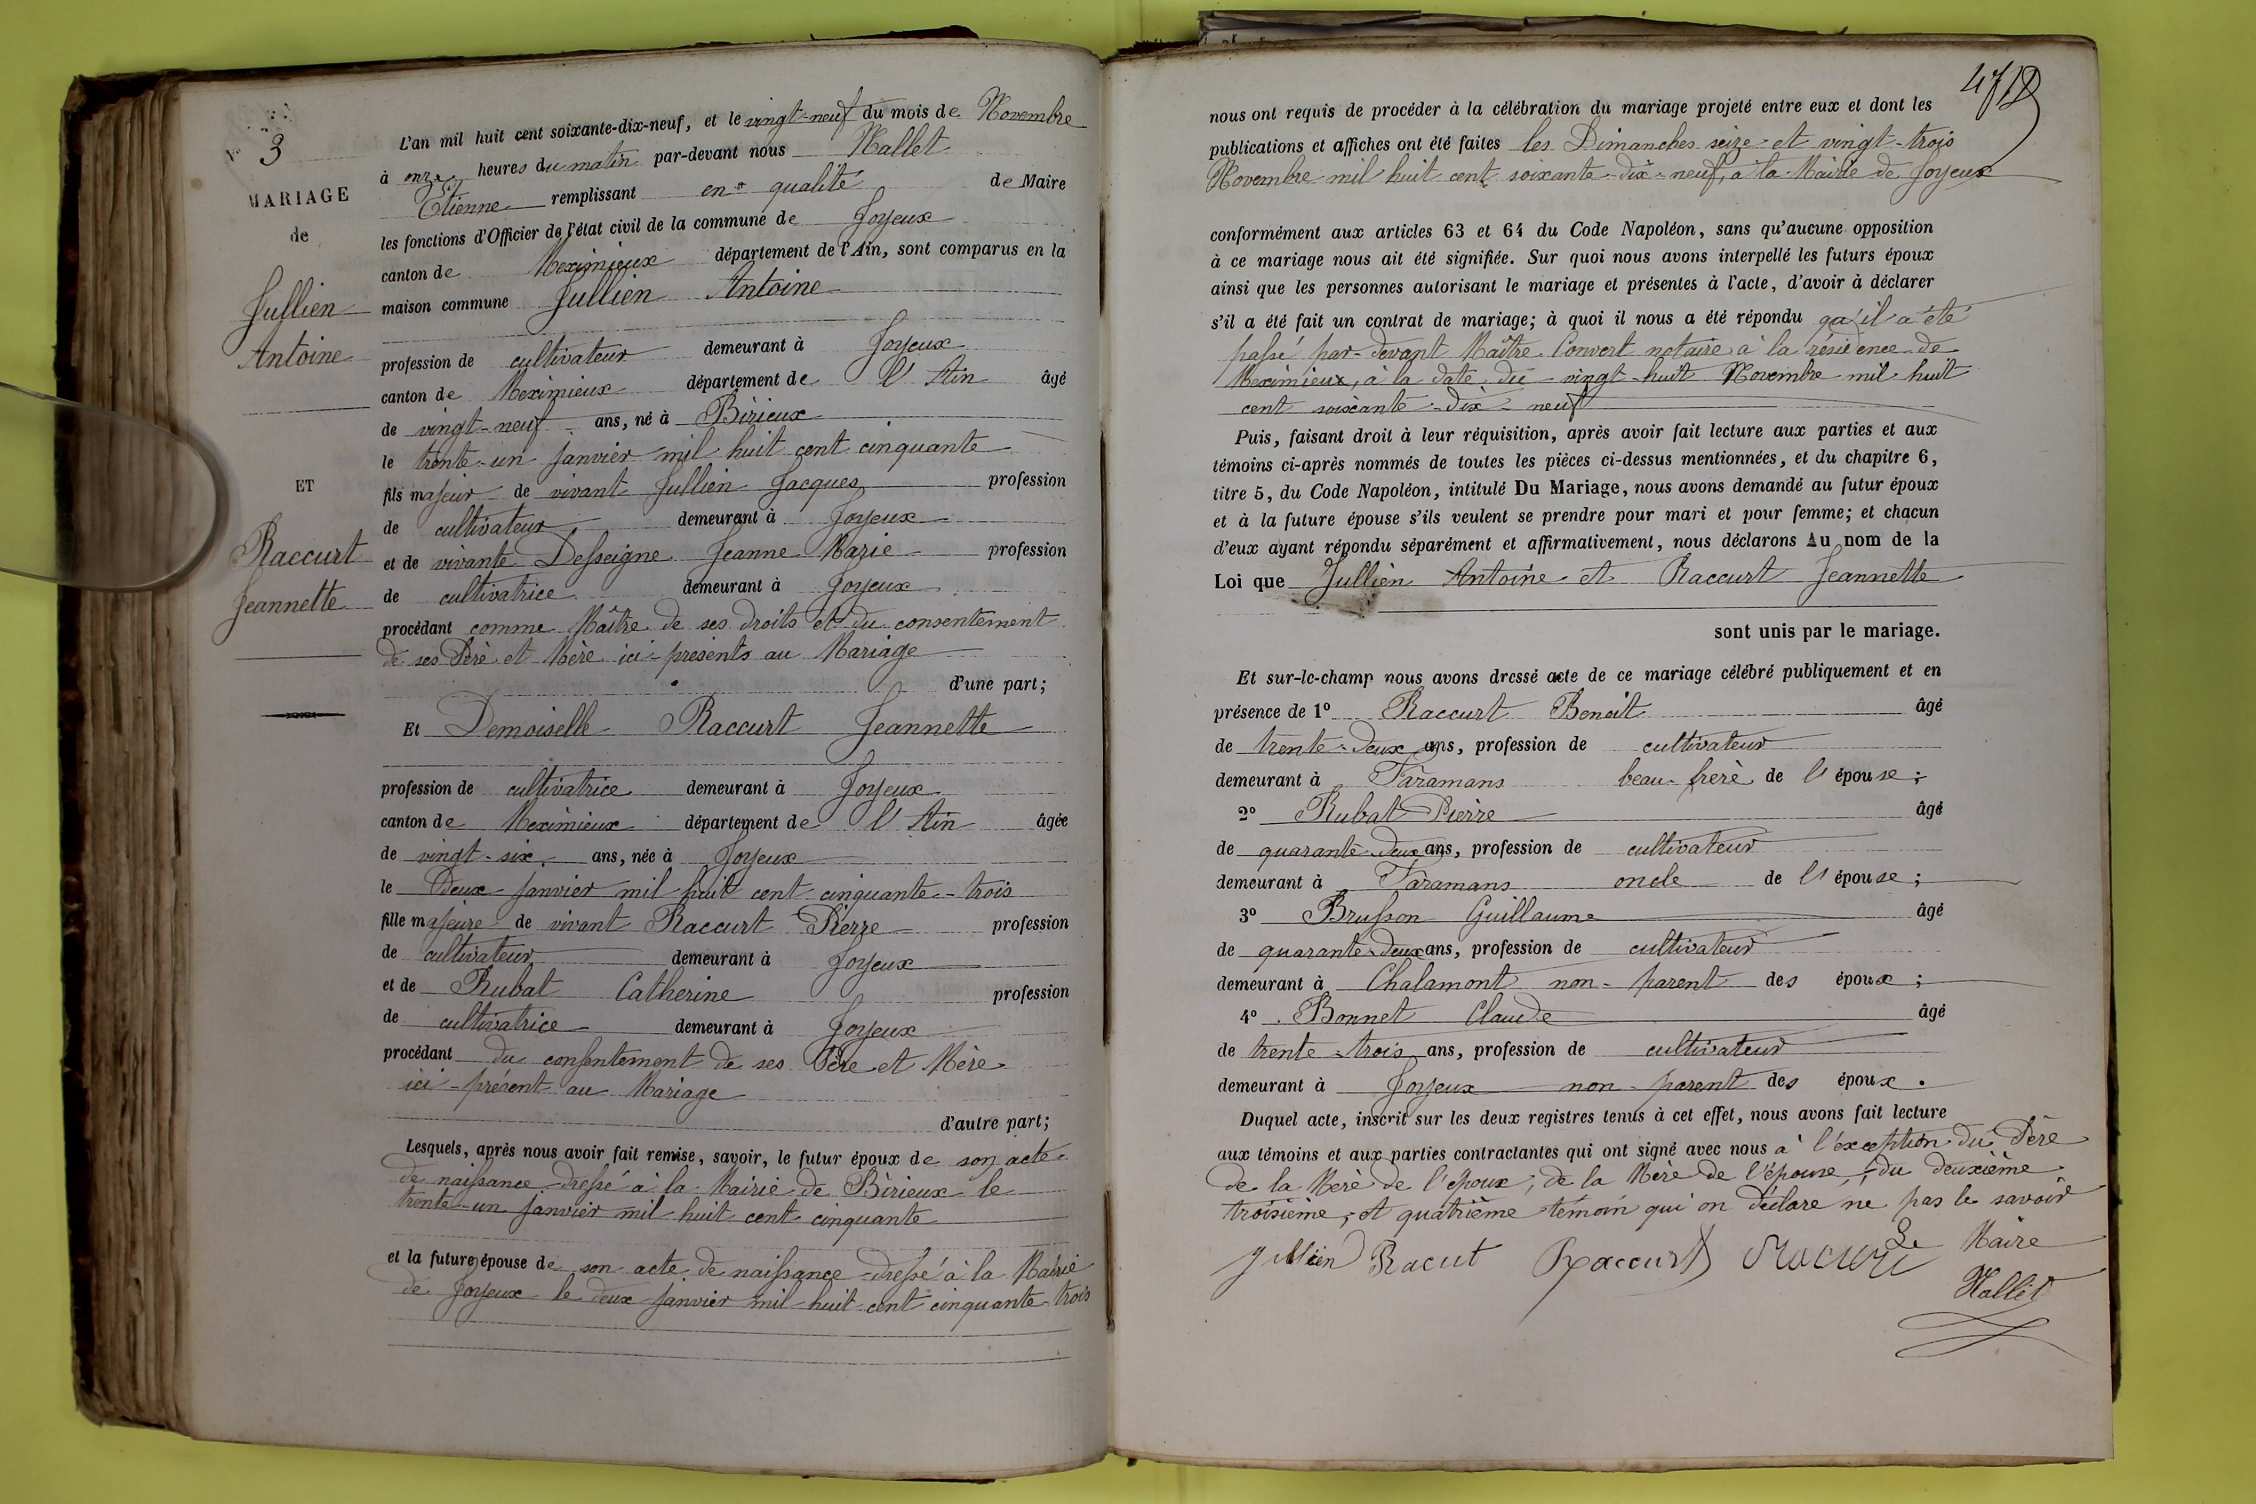 N° 3
MARIAGE
de
Jullien
Antoine
ET
Raccurt
Jeannette
L'an mil huit cent soixante-dix-neuf, et le vingt-neuf du mois de Novembre
à onze heures du matin par-devant nous Mallet
Etienne remplissant en qualité de Maire
les fonctions d'Officier de l'état civil de la commune de Joyeux
canton de Meximieux département de l'Ain, sont comparus en la
maison commune Jullien Antoine
profession de cultivateur demeurant à Joyeux
canton de Meximieux département de l'Ain âgé
de vingt-neuf ans, né à Birieux
le trente-un janvier mil huit cent cinquante
fils majeur de vivant Jullien Jacques profession
de cultivateur demeurant à Joyeux
et de vivante Desseigne Jeanne Marie profession
de cultivatrice demeurant à Joyeux
procédant comme Maître de ses droits et du consentement
de ses Père et Mère ici-présents au Mariage
d'une part;
Et Demoiselle Raccurt Jeannette
profession de cultivatrice demeurant à Joyeux
canton de Meximieux département de l'Ain âgée
de vingt-six ans, née à Joyeux
le Deux janvier mil huit cent cinquante-trois
fille majeure de vivant Raccurt Pierre profession
de cultivateur demeurant à Joyeux
et de Rubat Catherine profession
de cultivatrice demeurant à Joyeux
procédant du consentement de ses Père et Mère
ici-présent au Mariage
d'autre part;
Lesquels, après nous avoir fait remise, savoir, le futur époux de son acte
de naissance dressé à la Mairie de Birieux le
trente-un janvier mil huit cent cinquante
et la future épouse de son acte de naissance dressé à la Mairie
de Joyeux le deux janvier mil huit cent cinquante-trois
nous ont requis de procéder à la célébration du mariage projeté entre eux et dont les
publications et affiches ont été faites les Dimanches seize et vingt-trois
Novembre mil huit cent soixante-dix-neuf, à la Mairie de Joyeux
conformément aux articles 63 et 64 du Code Napoléon, sans qu'aucune opposition
à ce mariage nous ait été signifiée. Sur quoi nous avons interpellé les futurs époux
ainsi que les personnes autorisant le mariage et présentes à l'acte, d'avoir à déclarer
s'il a été fait un contrat de mariage; à quoi il nous a été répondu qu'il a été
passé par-devant Maître Convert notaire à la résidence de
Meximieux, à la date du vingt-huit Novembre mil huit
cent soixante-dix-neuf
Puis, faisant droit à leur réquisition, après avoir fait lecture aux parties et aux
témoins ci-après nommés de toutes les pièces ci-dessus mentionnées, et du chapitre 6,
titre 5, du Code Napoléon, intitulé Du Mariage, nous avons demandé au futur époux
et à la future épouse s'ils veulent se prendre pour mari et pour femme; et chacun
d'eux ayant répondu séparément et affirmativement, nous déclarons Au nom de la
Loi que Jullien Antoine et Raccurt Jeannette
sont unis par le mariage.
Et sur-le-champ nous avons dressé acte de ce mariage célébré publiquement et en
présence de 1° Raccurt Benoit âgé
de trente-deux ans, profession de cultivateur
demeurant à Faramans beau-frère de l'épouse;
2° Rubat Pierre âgé
de quarante-deux ans, profession de cultivateur
demeurant à Faramans oncle de l'épouse;
3° Brusson Guillaume âgé
de quarante-deux ans, profession de cultivateur
demeurant à Chalamont non-parent des époux;
4° Bonnet Claude âgé
de trente-trois ans, profession de cultivateur
demeurant à Joyeux non-parent des époux.
Duquel acte, inscrit sur les deux registres tenus à cet effet, nous avons fait lecture
aux témoins et aux parties contractantes qui ont signé avec nous à l'exception du Père
de la Mère de l'époux, de la Mère de l'épouse, du deuxième
troisième, et quatrième témoin qui on déclare ne pas le savoir
Jullien Racut Raccurt Le Maire
Mallet